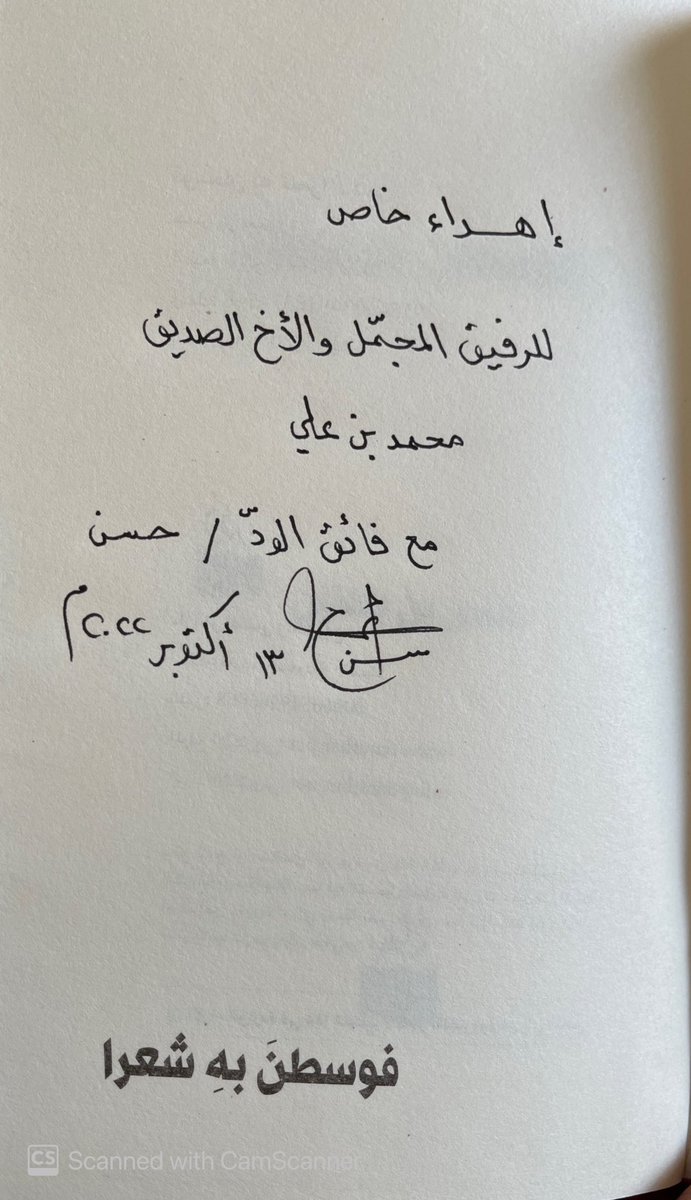 إهداء خاص
للرفيق المجمّل والأخ الصديق
محمد بن علي
مع فائق الودّ / حسن
١٣ أكتوبر ٢٠٢٢م
فوسطنَ بهِ شعرا
CS Scanned with CamScanner